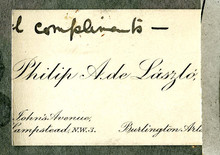 l compliments —
Philip A. de László,
John's Avenue,
ampstead, N.W.3. Burlington Arts